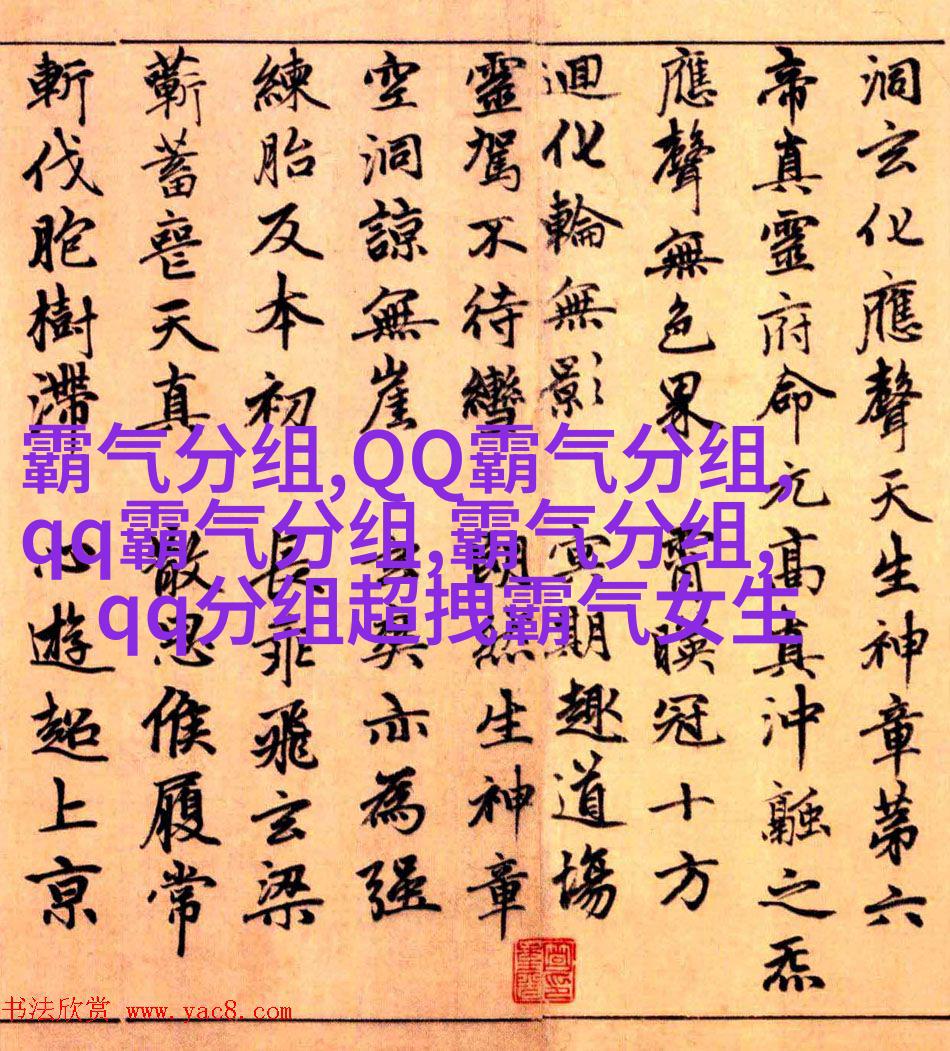 洞玄化應聲天生神章第六
帝真靈府命元高真沖融之炁
應聲無色界 霄暎冠十方
迴化輪無影 冥期趣道場
靈駕不待轡 朗然生神章
空洞諒無崖 玄亦為強
練胎反本初 長乖飛玄梁
蘄蓄喪天真 散思候履常
斬伐胞樹滯 心遊超上京
霸气分组,QQ霸气分组,
qq霸气分组,霸气分组,
qq分组超拽霸气女生
书法欣赏 www.yac8.com